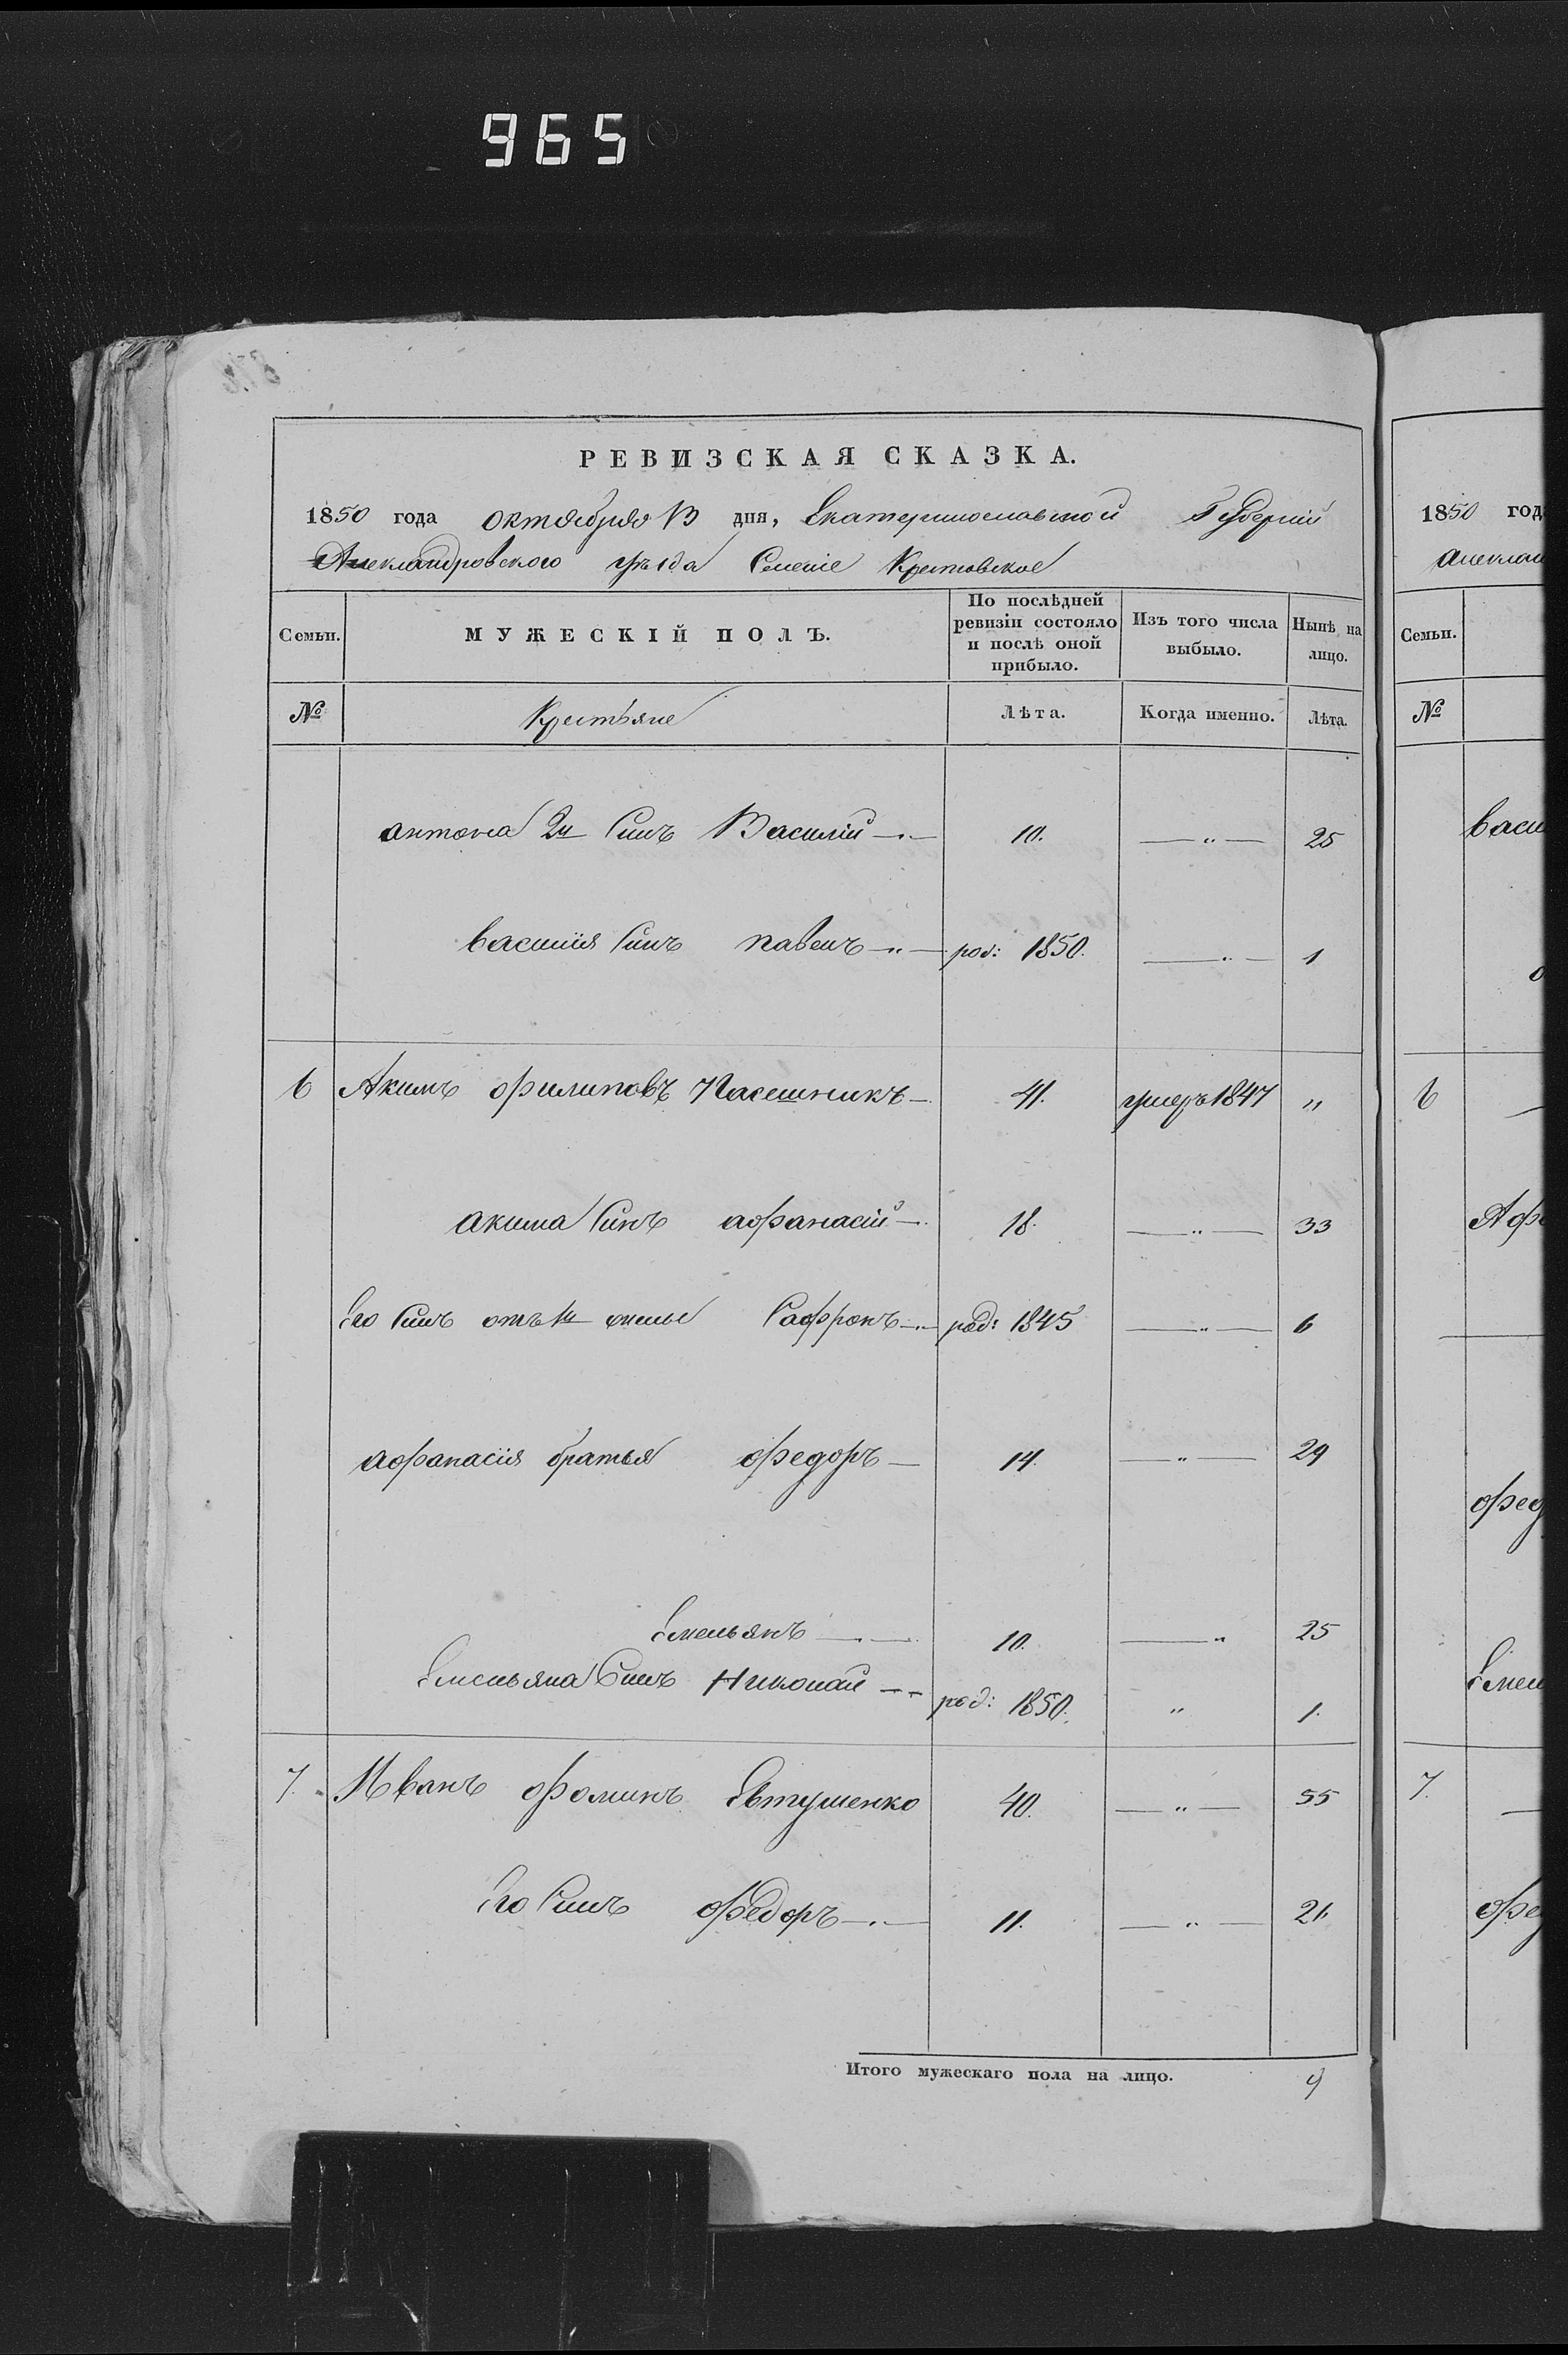 965
РЕВИЗСКАЯ СКАЗКА.
1850 года октября дня, Екатеринославской Губерніи
Александровского уѣзда Селеніе Крестовское
Семьи. МУЖЕСКІЙ ПОЛЪ. По послѣдней ревизіи состояло и послѣ оной прибыло. Изъ того числа выбыло. Нынѣ на лицо.
№ Крестьяне Лѣта. Когда именно. Лѣта.
антона 2й Синъ Василій 10. — „ — 25
василія Синъ павелъ — „ — род: 1850. — „ — 1
6 Акимъ филиповъ Пасешникъ — 41. умеръ 1847 „
акима Синъ афанасій — 18. — „ — 33
Его Синъ отъ 1й жены Сафронъ род: 1845 — „ — 6
афанасія братья федоръ — 14. — „ — 29
Емельянъ 10. — „ 25
Емельяна Синъ Николай — — род: 1850. „ 1.
7. Иванъ фоминъ Евтушенко 40. — „ — 55
Его Синъ федоръ 11. — „ — 21
Итого мужескаго пола на лицо. 9
1850 год
Семьи.
№
васи
6
Афа
фед
Емел
7.
фед